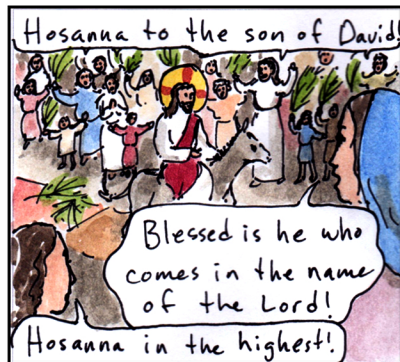 Hosanna to the son of David!
Blessed is he who
comes in the name
of the Lord!
Hosanna in the highest!